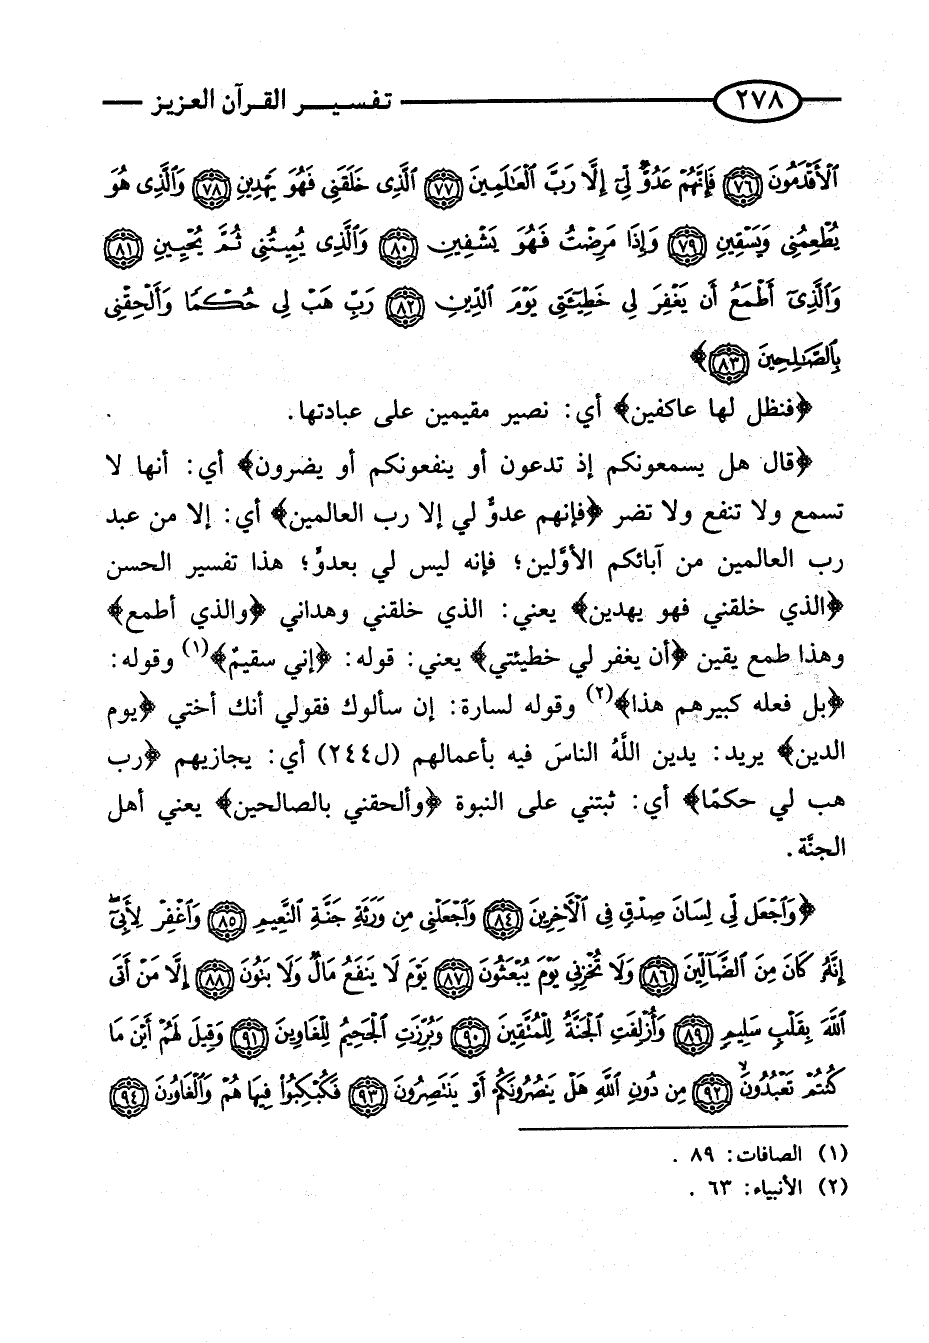 ٢٧٨ تفسير القرآن العزيز
ٱلْأَقْدَمُونَ ﴿٧٦﴾ فَإِنَّهُمْ عَدُوٌّ لِّىٓ إِلَّا رَبَّ ٱلْعَٰلَمِينَ ﴿٧٧﴾ ٱلَّذِى خَلَقَنِى فَهُوَ يَهْدِينِ ﴿٧٨﴾ وَٱلَّذِى هُوَ
يُطْعِمُنِى وَيَسْقِينِ ﴿٧٩﴾ وَإِذَا مَرِضْتُ فَهُوَ يَشْفِينِ ﴿٨٠﴾ وَٱلَّذِى يُمِيتُنِى ثُمَّ يُحْيِينِ ﴿٨١﴾
وَٱلَّذِىٓ أَطْمَعُ أَن يَغْفِرَ لِى خَطِيٓـَٔتِى يَوْمَ ٱلدِّينِ ﴿٨٢﴾ رَبِّ هَبْ لِى حُكْمًا وَأَلْحِقْنِى
بِٱلصَّٰلِحِينَ ﴿٨٣﴾﴾
﴿فنظل لها عاكفين﴾ أي: نصير مقيمين على عبادتها.
﴿قال هل يسمعونكم إذ تدعون أو ينفعونكم أو يضرون﴾ أي: أنها لا
تسمع ولا تنفع ولا تضر ﴿فإنهم عدوٌّ لي إلا رب العالمين﴾ أي: إلا من عبد
رب العالمين من آبائكم الأوَّلين؛ فإنه ليس لي بعدوٍّ؛ هذا تفسير الحسن
﴿الذي خلقني فهو يهدين﴾ يعني: الذي خلقني وهداني ﴿والذي أطمع﴾
وهذا طمع يقين ﴿أن يغفر لي خطيئتي﴾ يعني: قوله: ﴿إني سقيمٌ﴾(١) وقوله:
﴿بل فعله كبيرهم هذا﴾(٢) وقوله لسارة: إن سألوك فقولي أنك أختي ﴿يوم
الدين﴾ يريد: يدين اللَّهُ الناسَ فيه بأعمالهم (ل٢٤٤) أي: يجازيهم ﴿رب
هب لي حكمًا﴾ أي: ثبتني على النبوة ﴿وألحقني بالصالحين﴾ يعني أهل
الجنَّة.
﴿وَٱجْعَل لِّى لِسَانَ صِدْقٍ فِى ٱلْأَخِرِينَ ﴿٨٤﴾ وَٱجْعَلْنِى مِن وَرَثَةِ جَنَّةِ ٱلنَّعِيمِ ﴿٨٥﴾ وَٱغْفِرْ لِأَبِىٓ
إِنَّهُۥ كَانَ مِنَ ٱلضَّآلِّينَ ﴿٨٦﴾ وَلَا تُخْزِنِى يَوْمَ يُبْعَثُونَ ﴿٨٧﴾ يَوْمَ لَا يَنفَعُ مَالٌ وَلَا بَنُونَ ﴿٨٨﴾ إِلَّا مَنْ أَتَى
ٱللَّهَ بِقَلْبٍ سَلِيمٍ ﴿٨٩﴾ وَأُزْلِفَتِ ٱلْجَنَّةُ لِلْمُتَّقِينَ ﴿٩٠﴾ وَبُرِّزَتِ ٱلْجَحِيمُ لِلْغَاوِينَ ﴿٩١﴾ وَقِيلَ لَهُمْ أَيْنَ مَا
كُنتُمْ تَعْبُدُونَ ﴿٩٢﴾ مِن دُونِ ٱللَّهِ هَلْ يَنصُرُونَكُمْ أَوْ يَنتَصِرُونَ ﴿٩٣﴾ فَكُبْكِبُوا۟ فِيهَا هُمْ وَٱلْغَاوُۥنَ ﴿٩٤﴾
(١) الصافات: ٨٩ .
(٢) الأنبياء: ٦٣ .